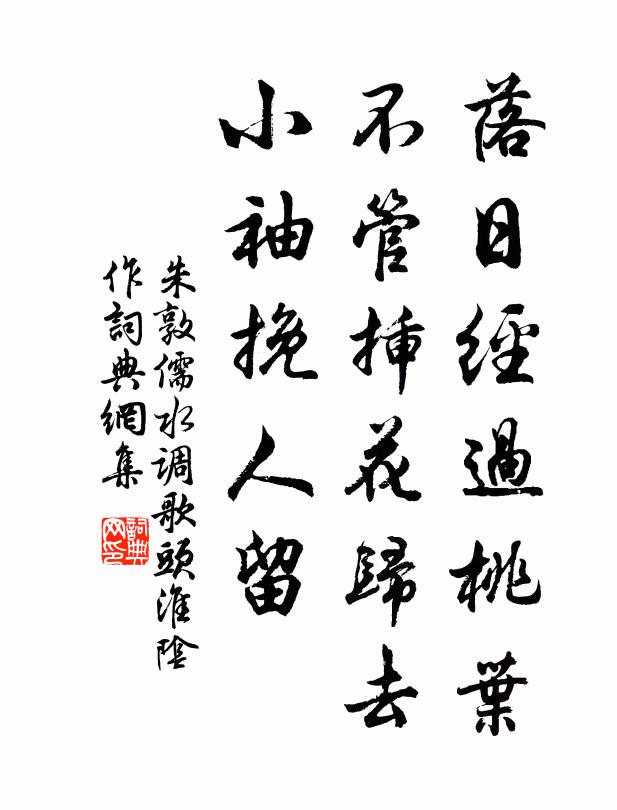 落日經過桃葉
不管插花歸去
小袖挽人留
朱敦儒水调歌頭淮陰
作詞典網集
詞典網印